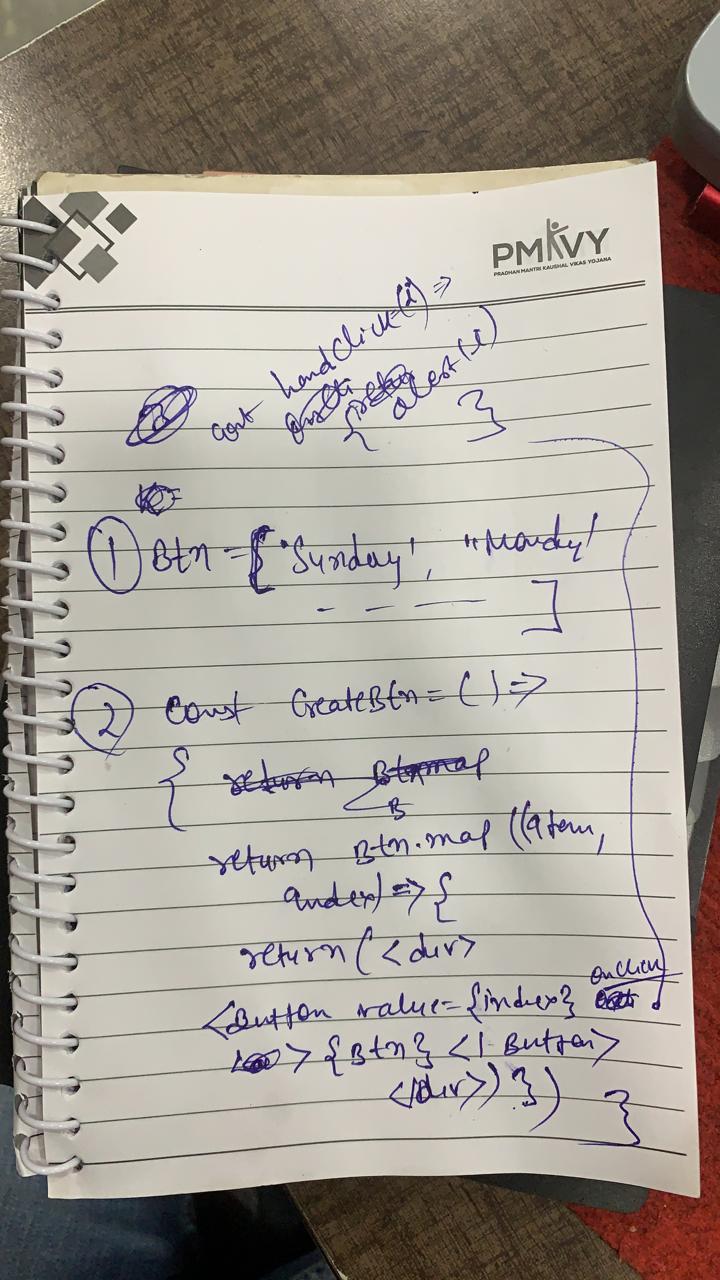 PMKVY
PRADHAN MANTRI KAUSHAL VIKAS YOJANA
const handClick=(i) =>
{ alert(i) }
1 Btn = [ 'Sunday', "Monday'
- - — ]
2 const CreateBtn = ( ) =>
{ return Btn map
B
return Btn.map ((item,
index) => {
return ( <div>
onclick
<Button value={index}
> {Btn} </ Button>
</div>) }) }